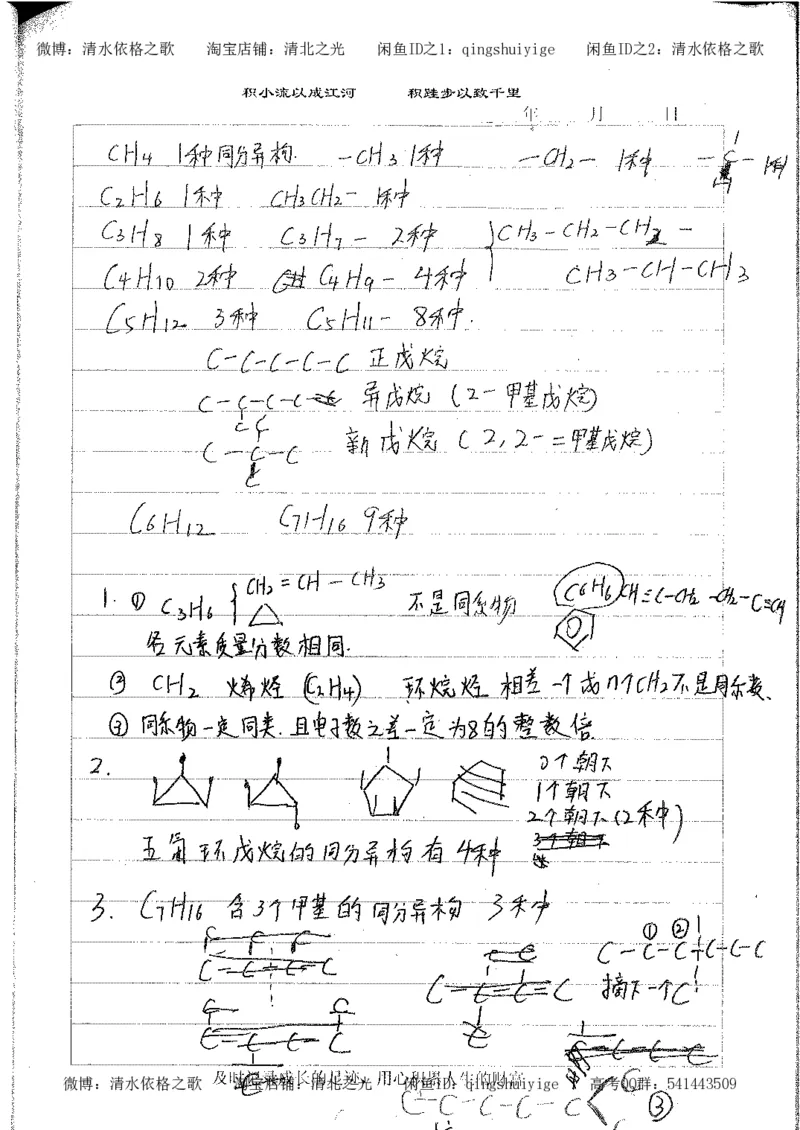 微博：清水依格之歌 淘宝店铺：清北之光 闲鱼ID之1：qingshuiyige 闲鱼ID之2：清水依格之歌
积小流以成江河 积跬步以致千里
年 月 日
CH4 1种同分异构. -CH3 1种 -CH2- 1种 -C- 1种
C2H6 1种 CH3CH2- 1种
C3H8 1种 C3H7- 2种 CH3-CH2-CH2-
C4H10 2种 C4H9- 4种 CH3-CH-CH3
C5H12 3种 C5H11- 8种.
C-C-C-C-C 正戊烷
C-C-C-C 异戊烷 (2-甲基戊烷)
C C
C-C-C 新戊烷 (2,2-二甲基戊烷)
C
C6H12 C7H16 9种
1. ① C3H6 CH2=CH-CH3 不是同系物 C6H6 CH≡C-CH2-CH2-C≡CH
各元素质量分数相同.
② CH2 烯烃 (C2H4) 环烷烃 相差一个或n个CH2不是同系数、
③ 同系物一定同类.且电子数之差一定为8的整数倍
2. 0个朝下
1个朝下
2个朝下(2种)
3个朝下
五氟环戊烷的同分异构有 4种
3. C7H16 含3个甲基的同分异构 3种
① ②
C-C-C-C-C-C
摘下一个C
及时记录成长的足迹，用心积攒人生的财富
微博：清水依格之歌 淘宝店铺：清北之光 闲鱼ID之1：qingshuiyige 高考QQ群：541443509
C-C-C-C-C C ③